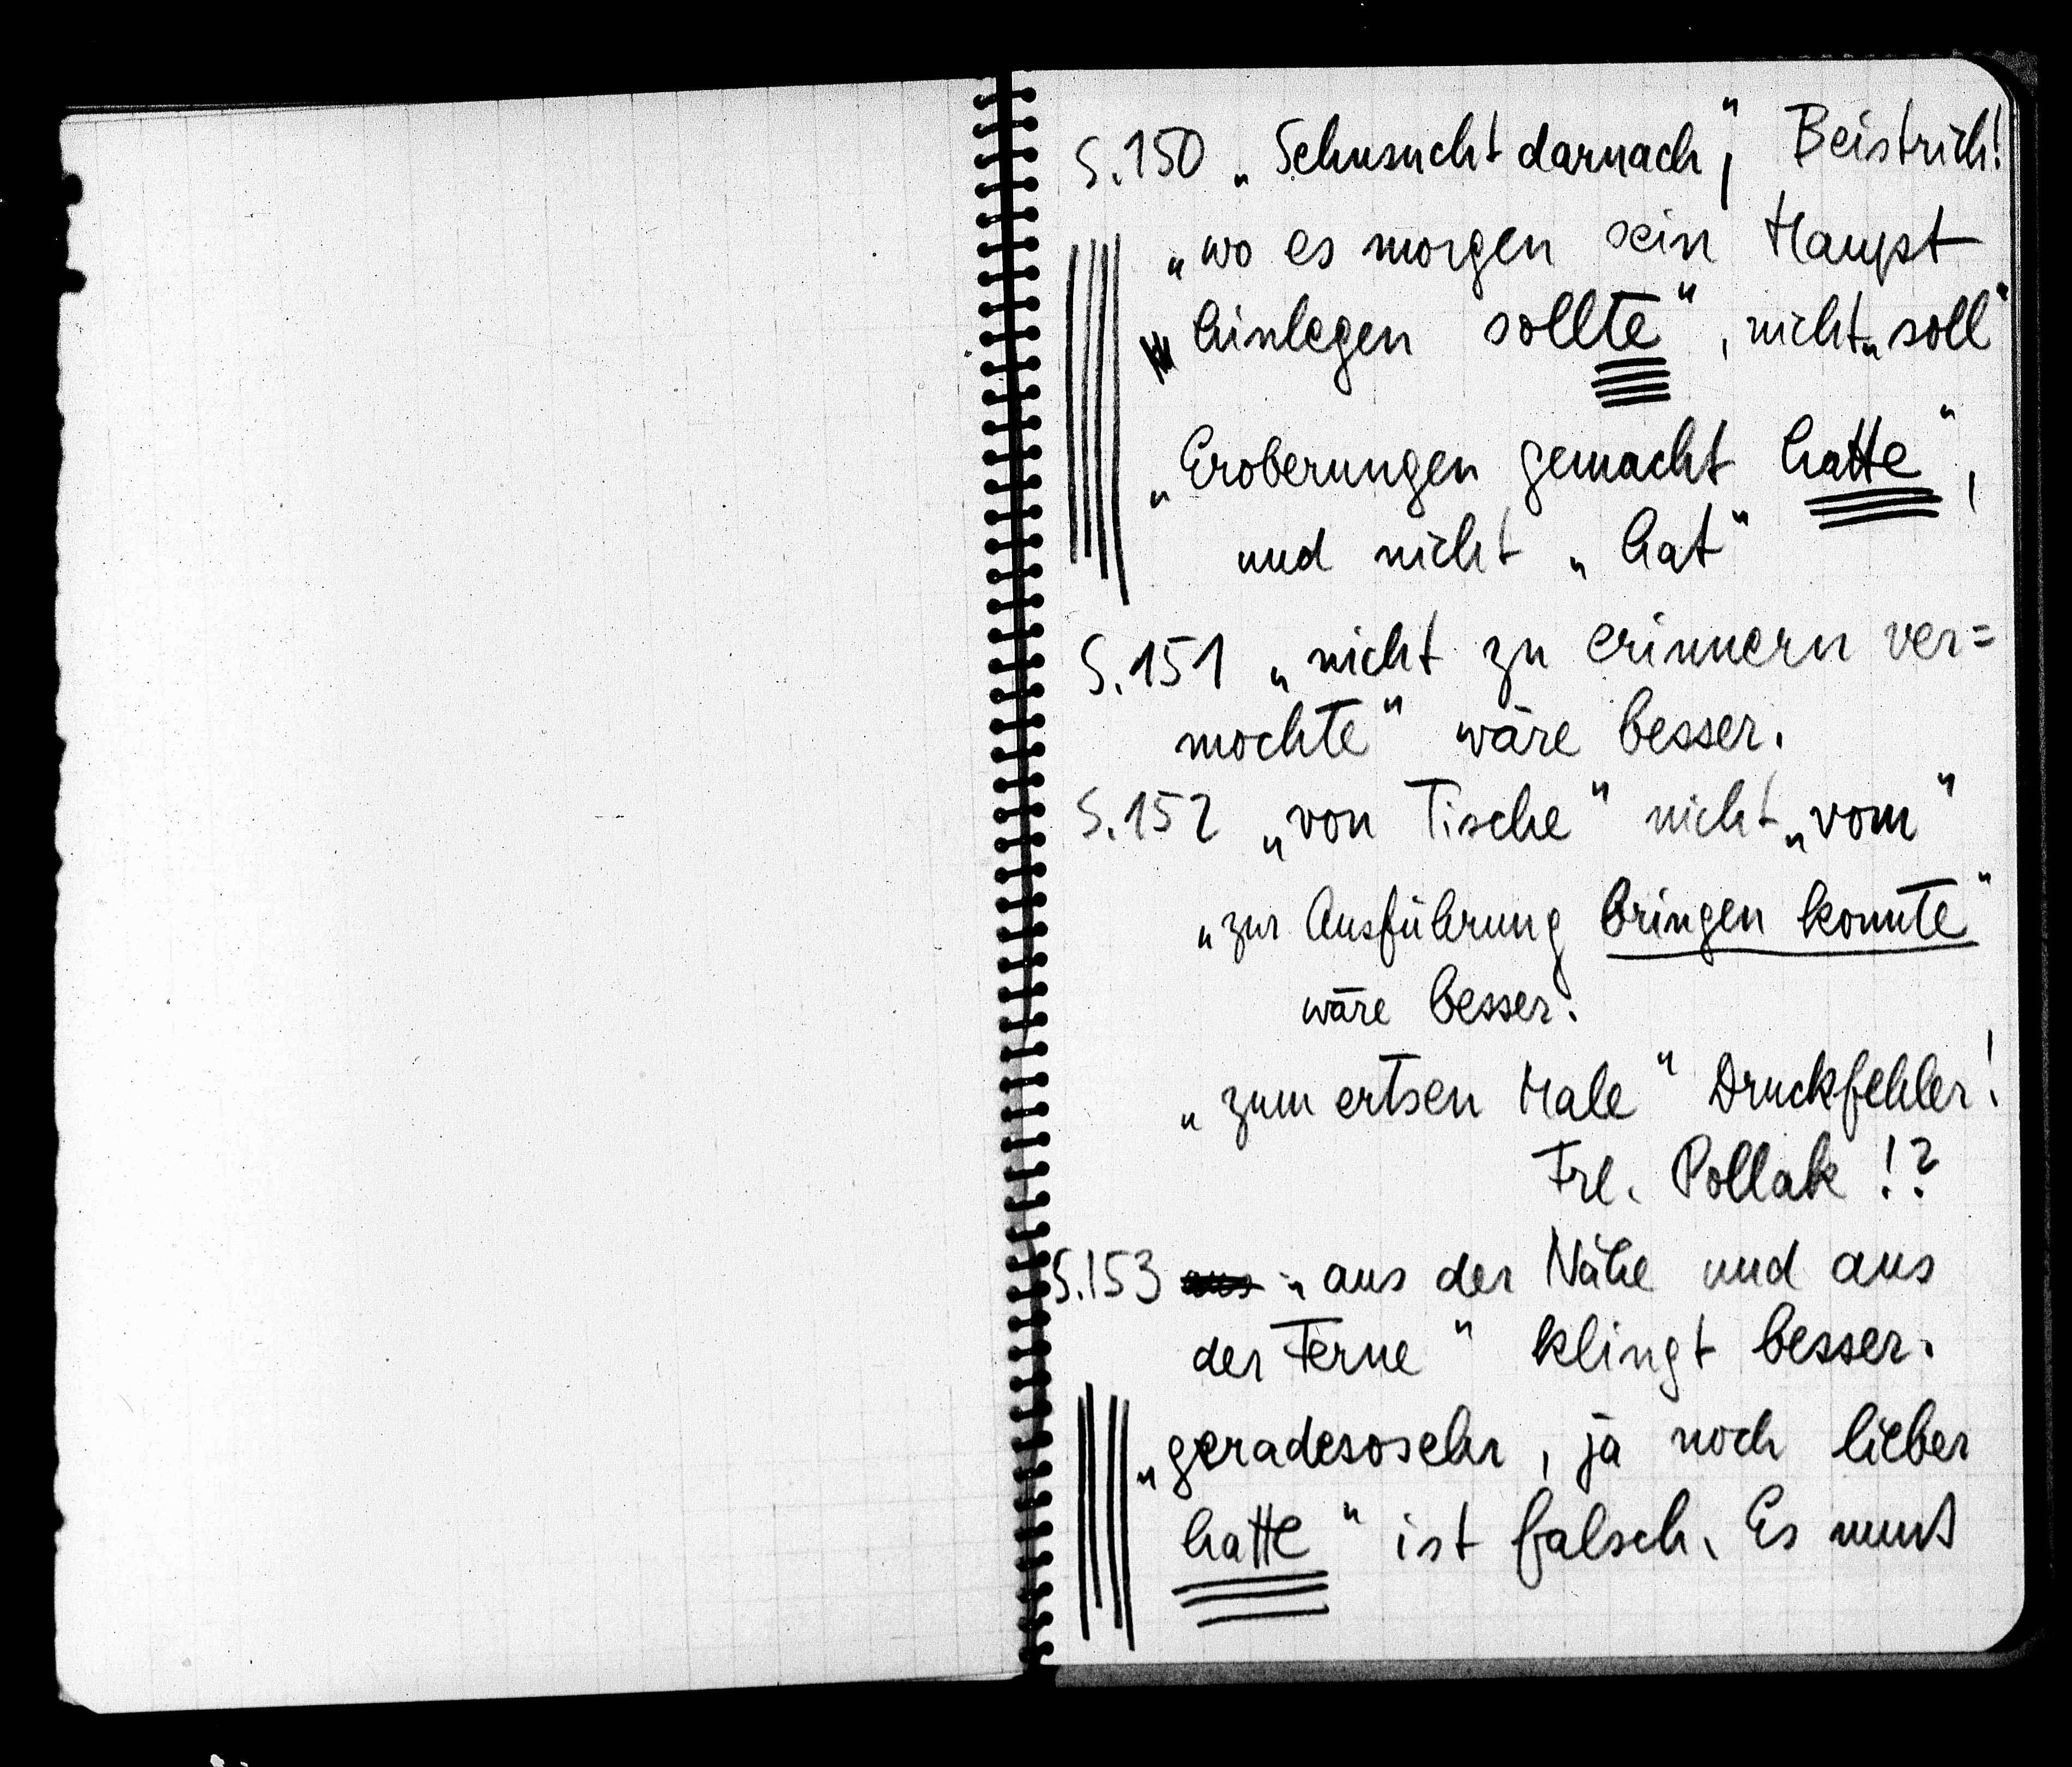 S.150 „Sehnsucht darnach," Beistrich!
„wo es morgen sein Haupt
hinlegen sollte", nicht „soll"
„Eroberungen gemacht hatte",
und nicht „hat"
S.151 „nicht zu erinnern ver=
mochte" wäre besser.
S.152 „von Tische" nicht „vom"
„zur Ausführung bringen konnte"
wäre besser.
„zum ertsen Male" Druckfehler!
Frl. Pollak !?
S.153 aus „aus der Nähe und aus
der Ferne" klingt besser.
„geradesosehr, ja noch lieber
hatte" ist falsch. Es muß